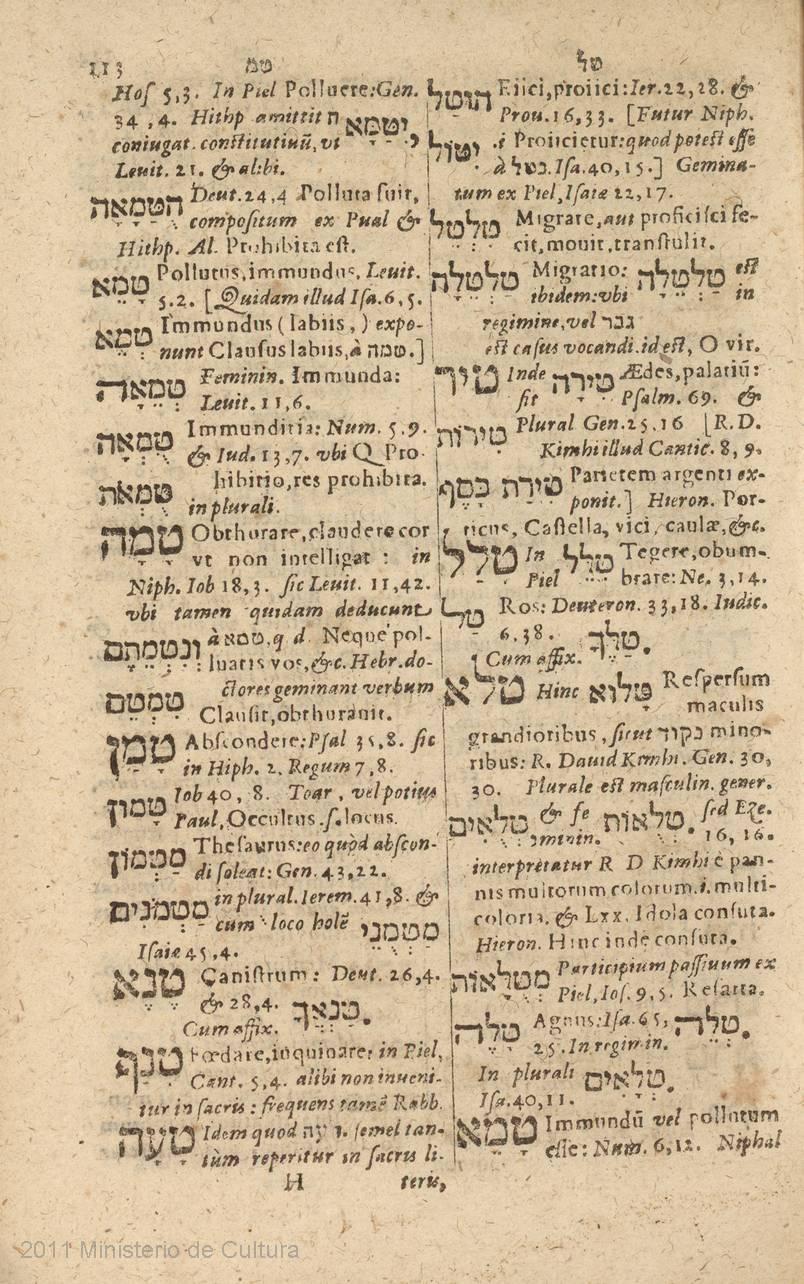 113 טמ טל
הוטל Eiici, proiici: Ier. 22, 28. &
Prou. 16, 33. [Futur Niph.
יטול .i Proiicietur: quod potest esse
à נטל. Isa. 40, 15.] Gemma-
tum ex Piel, Isaiæ 22, 17.
טלטל Migrare, aut proficisci fe-
cit, mouit, transtulit.
טלטלה Migratio: טלטלה est
ibidem: vbi in
regimine, vel גבר
est casus vocandi. id est, O vir.
טור Inde טירה Ædes, palatiū:
fit Psalm. 69. &
טירות Plural Gen. 25, 16 [R. D.
Kimhi illud Cantic. 8, 9.
טירת כסף Parietem argenti ex-
ponit.] Hieron. Por-
ticus, Castella, vici, caulæ, &c.
טלל In טלל Tegere, obum-
Piel brare: Ne. 3, 14.
טל Ros: Deuteron. 33, 18. Iudic.
6. 38. טלך.
Cum affix.
טלא Hinc טלוא Respersum
maculis
grandioribus, sicut נקוד mino-
ribus: R. Dauid Kimhi. Gen. 30,
30. Plurale est masculin. gener.
טלאים & fe טלאות. sed Eze.
minin. 16, 16.
interpretatur R D Kimhi è pan-
nis multorum colorum. i. multi-
coloria. & Lxx. Idola consuta.
Hieron. Hinc inde consuta.
מטלאות Participium passiuum ex
Piel, Ios. 9, 5. Resarta.
טלה Agnus: Isa. 65, טלה.
25. In regimin.
In plurali טלאים.
Isa. 40, 11.
טמא Immundū vel pollutum
esse: Num. 6, 12. Niphal
Hos 5, 3. In Piel Polluere: Gen.
34, 4. Hithp amittit ת יטמא
coniugat. constitutiuū, vt י
Leuit. 21. & alibi.
הטמאה Deut. 24, 4 Polluta fuit,
compositum ex Pual &
Hithp. Al. Prohibita est.
טמא Pollutus, immundus, Leuit.
5. 2. [Quidam illud Isa. 6, 5.
טמא Immundus (labiis,) expo-
nunt Clausus labiis, à טמה.]
טמאה Feminin. Immunda:
Leuit. 11, 6.
טמאה Immunditia: Num. 5, 9.
& Iud. 13, 7. vbi Q Pro-
טמאת hibitio, res prohibita.
in plurali.
טמה Obthurare, claudere cor
vt non intelligat: in
Niph. Iob 18, 3. sic Leuit. 11, 42.
vbi tamen quidam deducunt
ונטמתם à טמא, q d. Neque pol-
luatis vos, &c. Hebr. do-
טמטם ctores geminant verbum
Clausit, obthurauit.
טמן Abscondere: Psal 35, 8. sic
in Hiph. 2. Regum 7, 8.
טמון Iob 40, 8. Toar, vel potius
Paul, Occultus .s. locus.
מטמון Thesaurus: eo quòd abscon-
di soleat: Gen. 43, 22.
מטמנים in plural. Ierem. 41, 8. &
cum · loco holē מטמני
Isaiæ 45, 4.
טנא Canistrum: Deut. 26, 4.
& 28, 4. טנאך.
Cum affix.
טנף Fœdare, inquinare: in Piel,
Cant. 5, 4. alibi non inueni-
tur in sacris: frequens tamē Rabb.
טעה Idem quod תעה 1. semel tan-
tùm reperitur in sacris li-
H teris,
2011 Ministerio de Cultura